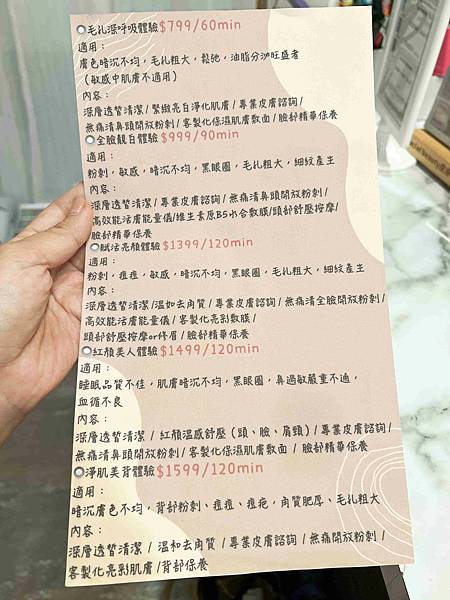 毛孔深呼吸體驗$799/60min
適用：
膚色暗沉不均，毛孔粗大，鬆弛，油脂分泌旺盛者
（敏感中肌膚不適用）
內容：
深層透皙清潔/緊緻亮白淨化肌膚/專業皮膚諮詢/
無痛清鼻頭開放粉刺/客製化保濕肌膚敷面/臉部精華保養
全臉靚白體驗$999/90min
適用：
粉刺，敏感，暗沉不均，黑眼圈，毛孔粗大，細紋產生
內容：
深層透皙清潔/專業皮膚諮詢/無痛清鼻頭開放粉刺/
高效能活膚能量儀/維生素原B5水合敷膜/頭部舒壓按摩/
臉部精華保養
賦活亮顏體驗$1399/120min
適用：
粉刺，痘痘，敏感，暗沉不均，黑眼圈，毛孔粗大，細紋產生
內容：
深層透皙清潔/溫如去角質/專業皮膚諮詢/無痛清全臉開放粉刺/
高效能活膚能量儀/客製化亮彩敷膜/
頭部舒壓按摩or修眉/臉部精華保養
紅顏美人體驗$1499/120min
適用：
睡眠品質不佳，肌膚暗沉不均，黑眼圈，鼻過敏嚴重不適，
血循不良
內容：
深層透皙清潔/紅顏溫感舒壓（頭、臉、肩頸）/專業皮膚諮詢/
無痛清鼻頭開放粉刺/客製化保濕肌膚敷面/臉部精華保養
淨肌美背體驗$1599/120min
適用：
暗沉膚色不均，背部粉刺、痘痘、痘疤，角質肥厚、毛孔粗大
內容：
深層透皙清潔/溫和去角質/專業皮膚諮詢/無痛開放粉刺/
客製化亮彩肌膚/背部保養